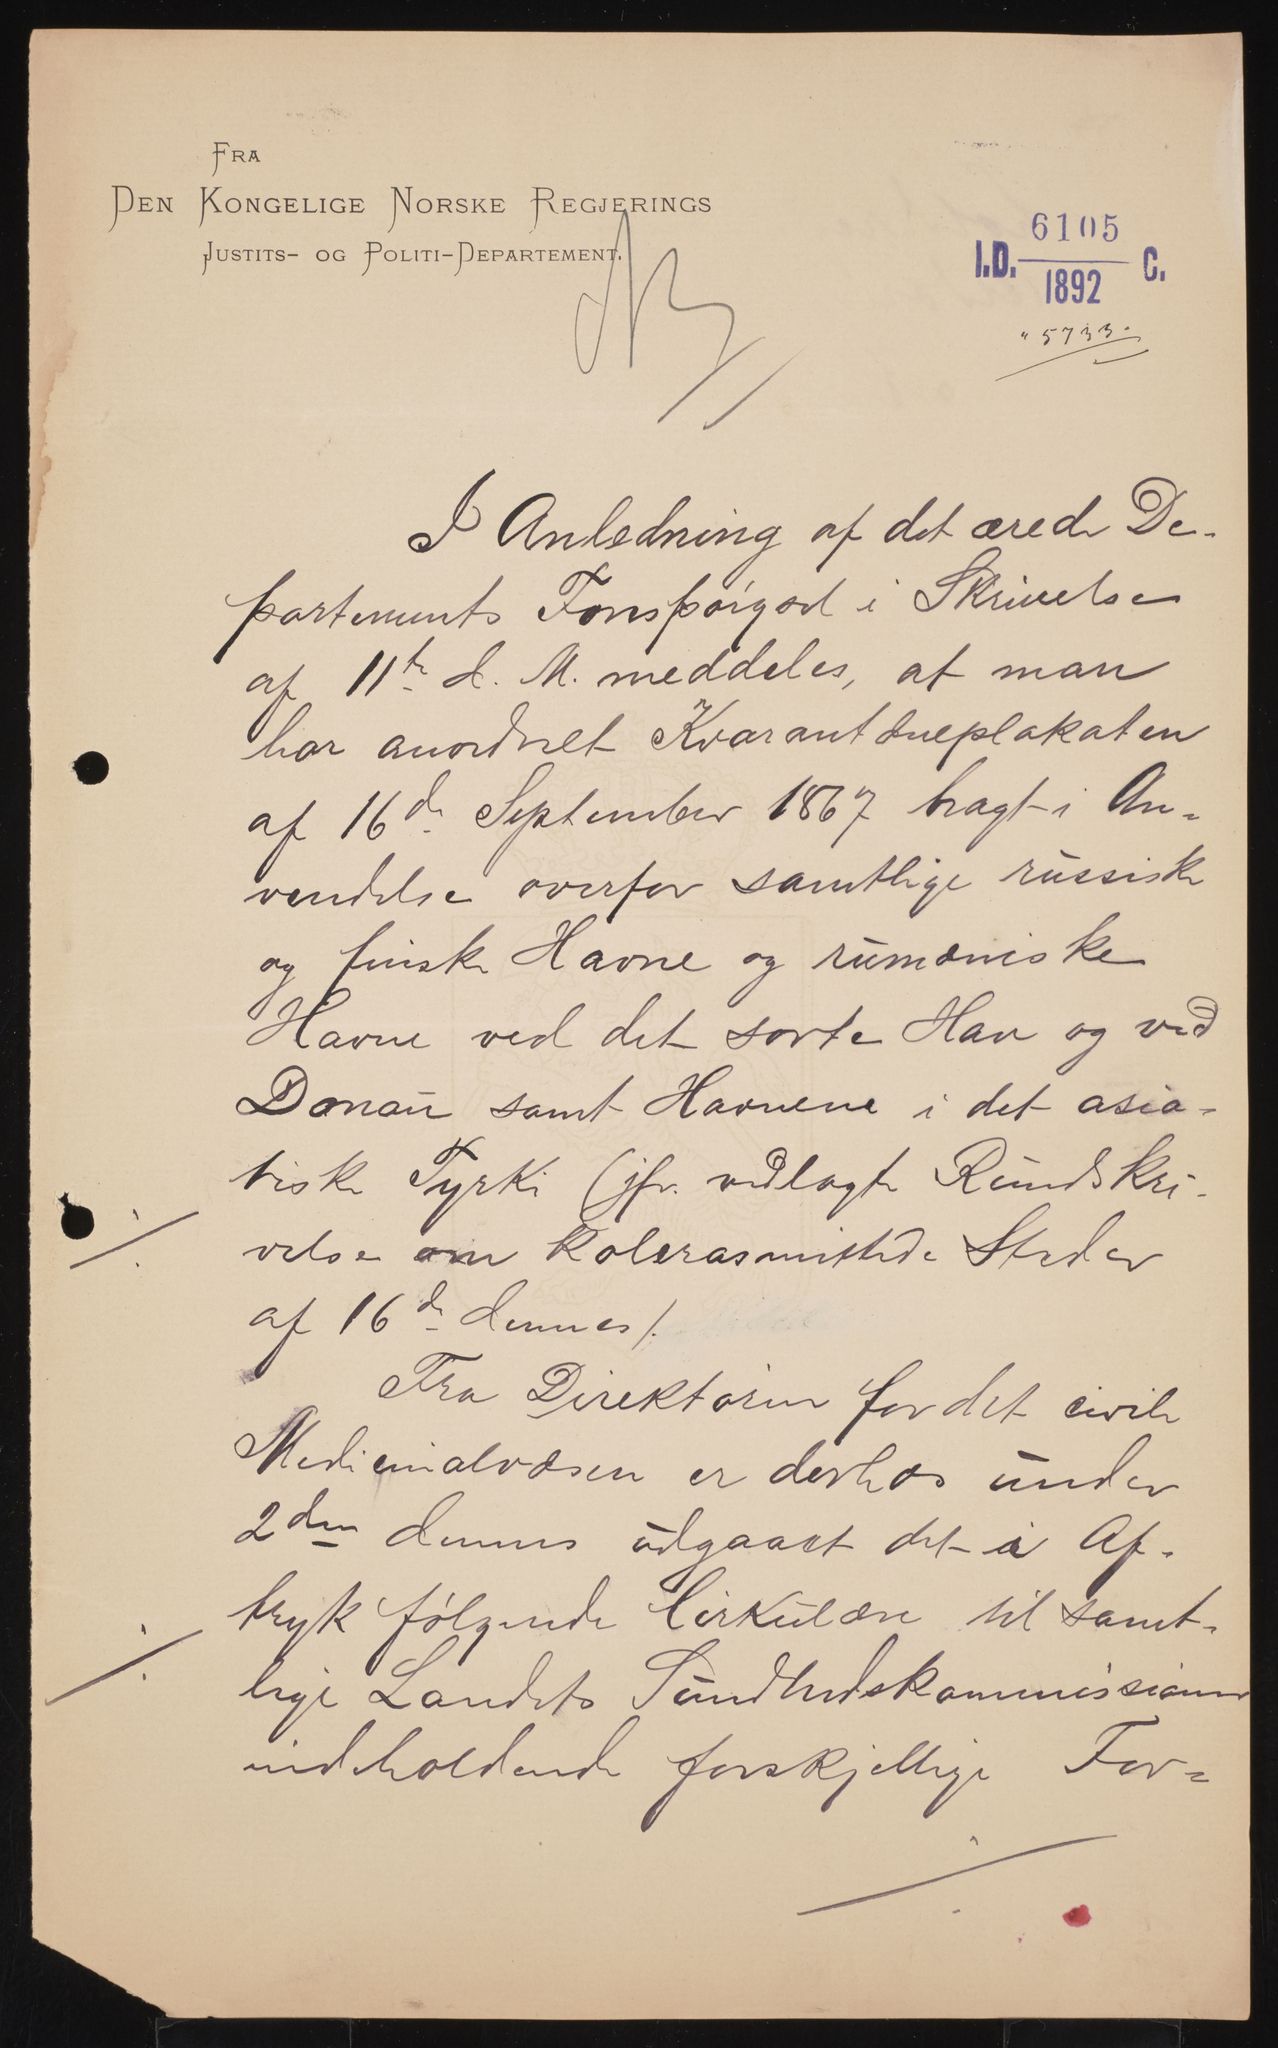 FRA
DEN KONGELIGE NORSKE REGJERINGS
JUSTITS- OG POLITI-DEPARTEMENT.
I.D. 6105 C.
1892
" 5733.
I Anledning af det ærede De-
partements Forespørgsel i Skrivelse
af 11te d. M. meddeles, at man
har anordnet Kvarantæneplakaten
af 16de September 1867 bragt i An-
vendelse overfor samtlige russiske
og finske Havne og rumæniske
Havne ved det sorte Hav og ved
Donau samt Havnene i det asia-
tiske Tyrki (jfr. vedlagte Rundskri-
velse om kolerasmittede Steder
af 16de dennes).
Fra Direktøren for det civile
Medicinalvæsen er derhos under
2den dennes udgaaet det i Af-
tryk følgende Cirkulære til samt-
lige Landets Sundhedskommissioner
indeholdende forskjellige For-